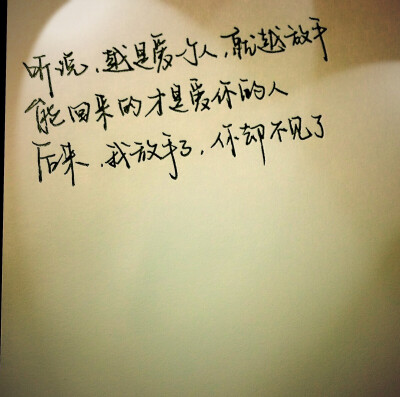 听说，越是爱一个人，就越放手
能回来的才是爱你的人
后来，我放手了，你却不见了